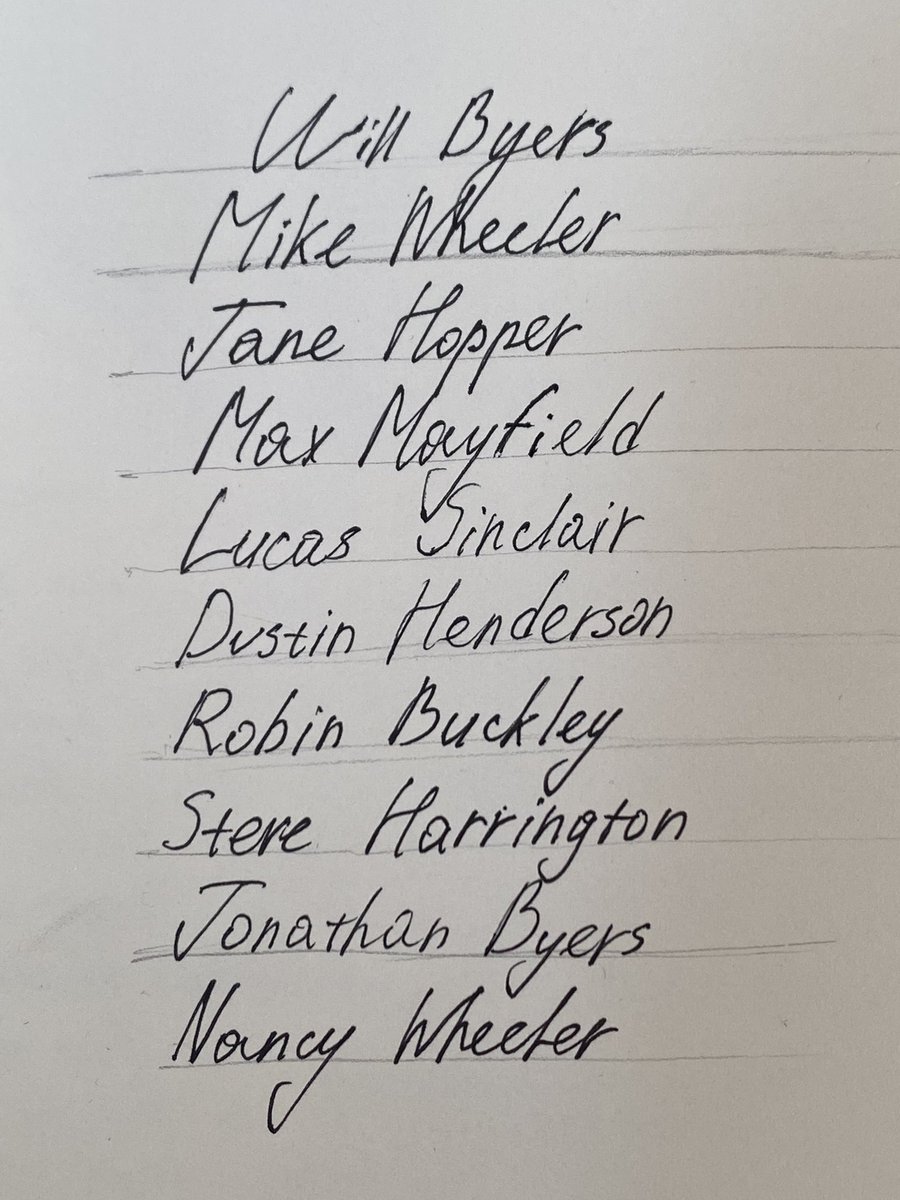 Will Byers
Mike Wheeler
Jane Hopper
Max Mayfield
Lucas Sinclair
Dustin Henderson
Robin Buckley
Steve Harrington
Jonathan Byers
Nancy Wheeler